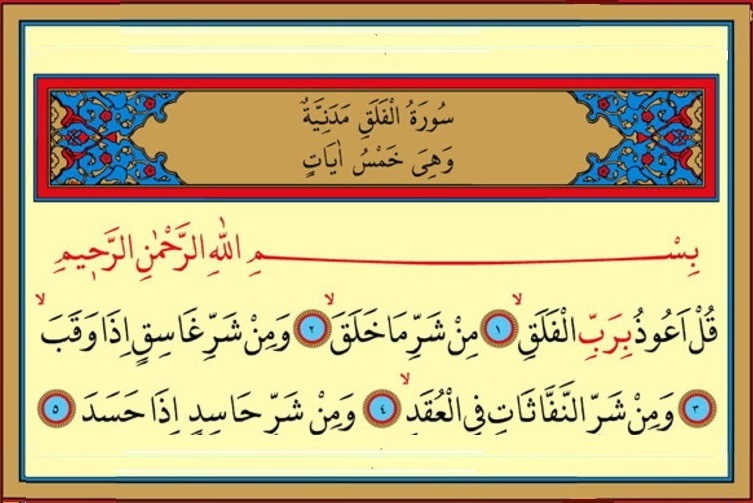 سُورَةُ الْفَلَقِ مَدَنِيَّةٌ
وَهِىَ خَمْسُ اٰيَاتٍ
بِسْمِ اللهِ الرَّحْمٰنِ الرَّحٖيمِ
قُلْ اَعُوذُ بِرَبِّ الْفَلَقِۙ ﴿١﴾ مِنْ شَرِّ مَا خَلَقَۙ ﴿٢﴾ وَمِنْ شَرِّ غَاسِقٍ اِذَا وَقَبَۙ
﴿٣﴾ وَمِنْ شَرِّ النَّفَّاثَاتِ فِى الْعُقَدِۙ ﴿٤﴾ وَمِنْ شَرِّ حَاسِدٍ اِذَا حَسَدَ ﴿٥﴾